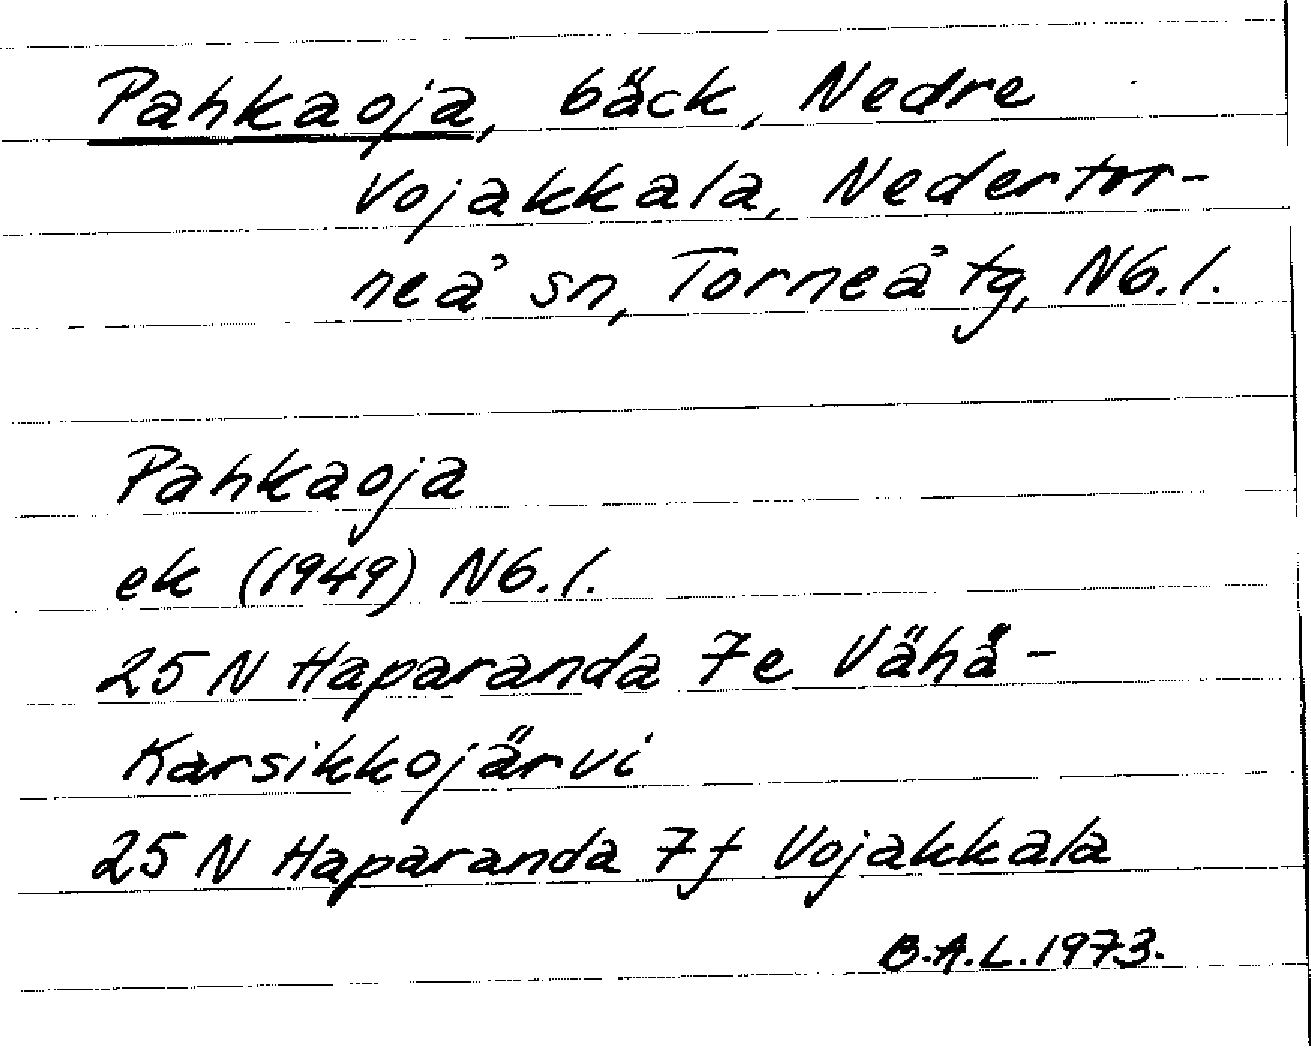 Pahkaoja, bäck, Nedre
Vojakkala, Nedertor-
neå sn, Torneå tg, Nb. l.
Pahkaoja
ek (1949) Nb. l.
25 N Haparanda 7e Vähä-
Karsikkojärvi
25 N Haparanda 7f Vojakkala
B.A.L. 1973.